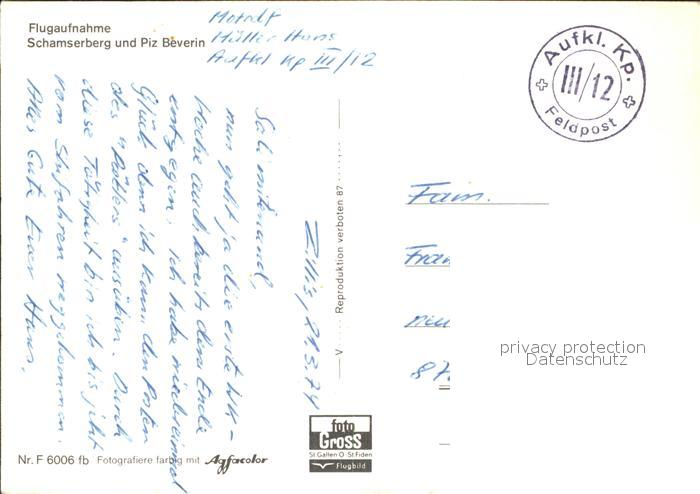 Flugaufnahme
Schamserberg und Piz Beverin
Motrdf
Müller Hans
Aufkl Kp III/12
Aufkl. Kp.
III/12
Feldpost
Zillis, 21.3.74
Sali mitenand,
nun geht ja die erste WK-
Woche auch bereits dem Ende
entgegen. Ich habe wieder einmal
Glück denn ich kann den Posten
des "Töfflers" ausüben. Durch
diese Tätigkeit bin ich bis jetzt
vom Skifahren weggekommen.
Alles Gute Euer Hans.
Fam.
Fran
neu
87
V
Reproduktion verboten 87
privacy protection
Datenschutz
foto
GROSS
St Gallen O · St Fiden
Flugbild
Nr. F 6006 fb Fotografiere farbig mit Agfacolor